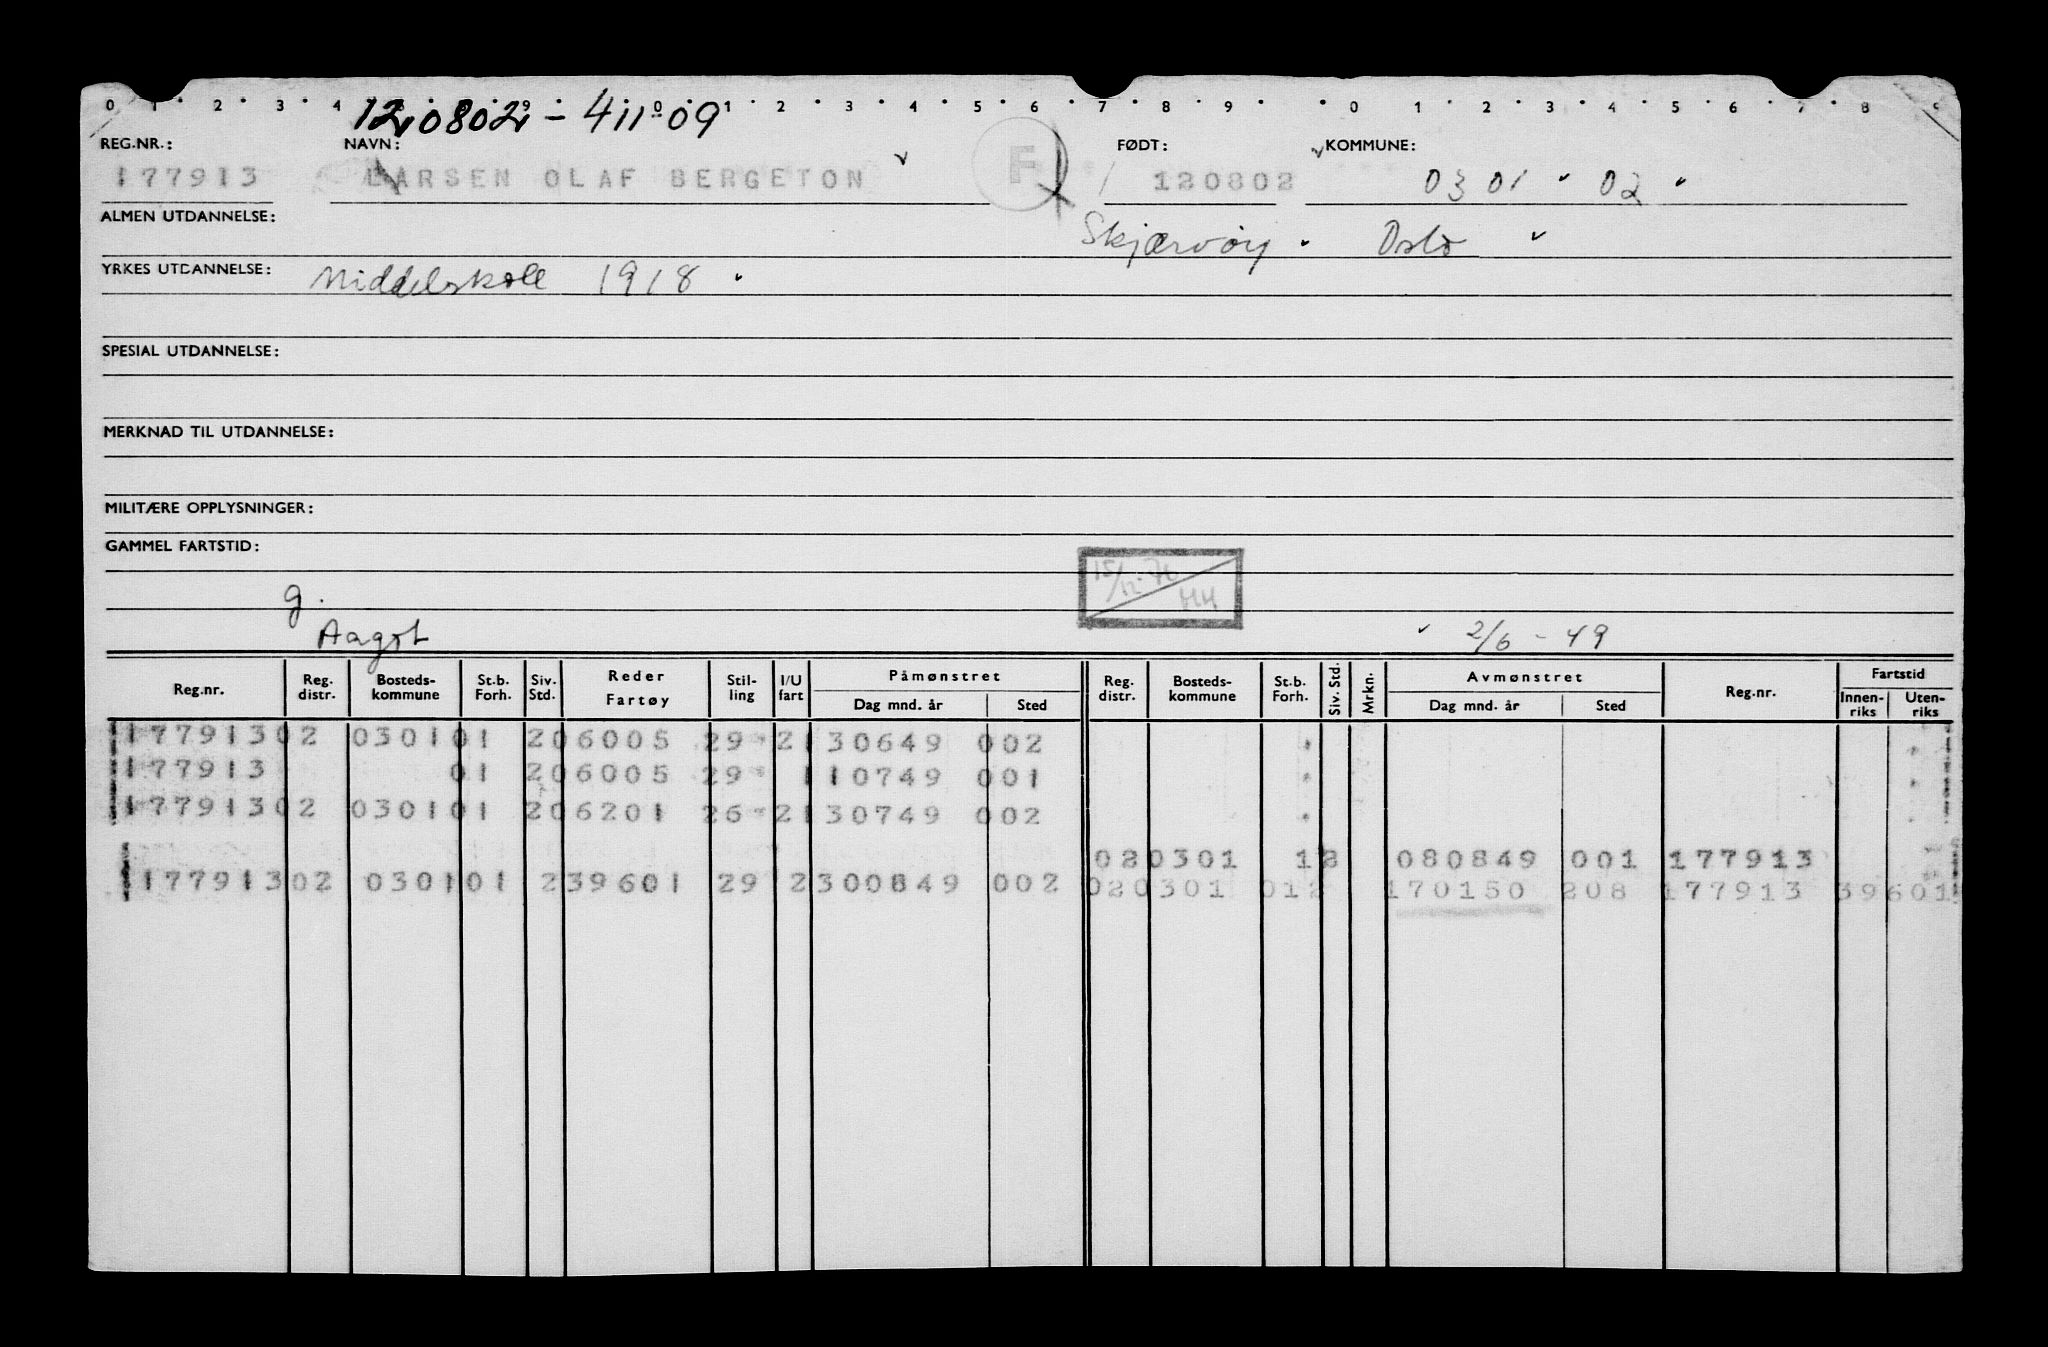 0 1 2 3 4 8 9 0 1 2 3 4 5 6 7 8 9 0 1 2 3 4 5 6 7 8 9
120802 - 41109
REG.NR.: NAVN: FØDT: KOMMUNE:
177913 LARSEN OLAF BERGETON F 120802 0301 02
ALMEN UTDANNELSE: Skjærvøy Oslo
YRKES UTDANNELSE: Middelskole 1918
SPESIAL UTDANNELSE:
MERKNAD TIL UTDANNELSE:
MILITÆRE OPPLYSNINGER:
GAMMEL FARTSTID:
15/12-76 HH
g.
Aagot 2/6 - 49
Reg.nr. Reg. distr. Bosteds-kommune St.b. Forh. Siv. Std. Reder Fartøy Stil-ling I/U fart Påmønstret Dag mnd. år Sted Reg. distr. Bosteds-kommune St.b. Forh. Siv. Std. Mrkn. Avmønstret Dag mnd. år Sted Reg.nr. Fartstid Innen-riks Uten-riks
17791302 030101 206005 29 2130649 002
177913 01 206005 29 110749 001
17791302 030101 206201 26 2130749 002
020301 12 080849 001 177913
17791302 030101 239601 29 2300849 002 020301 012 170150 208 177913 39601